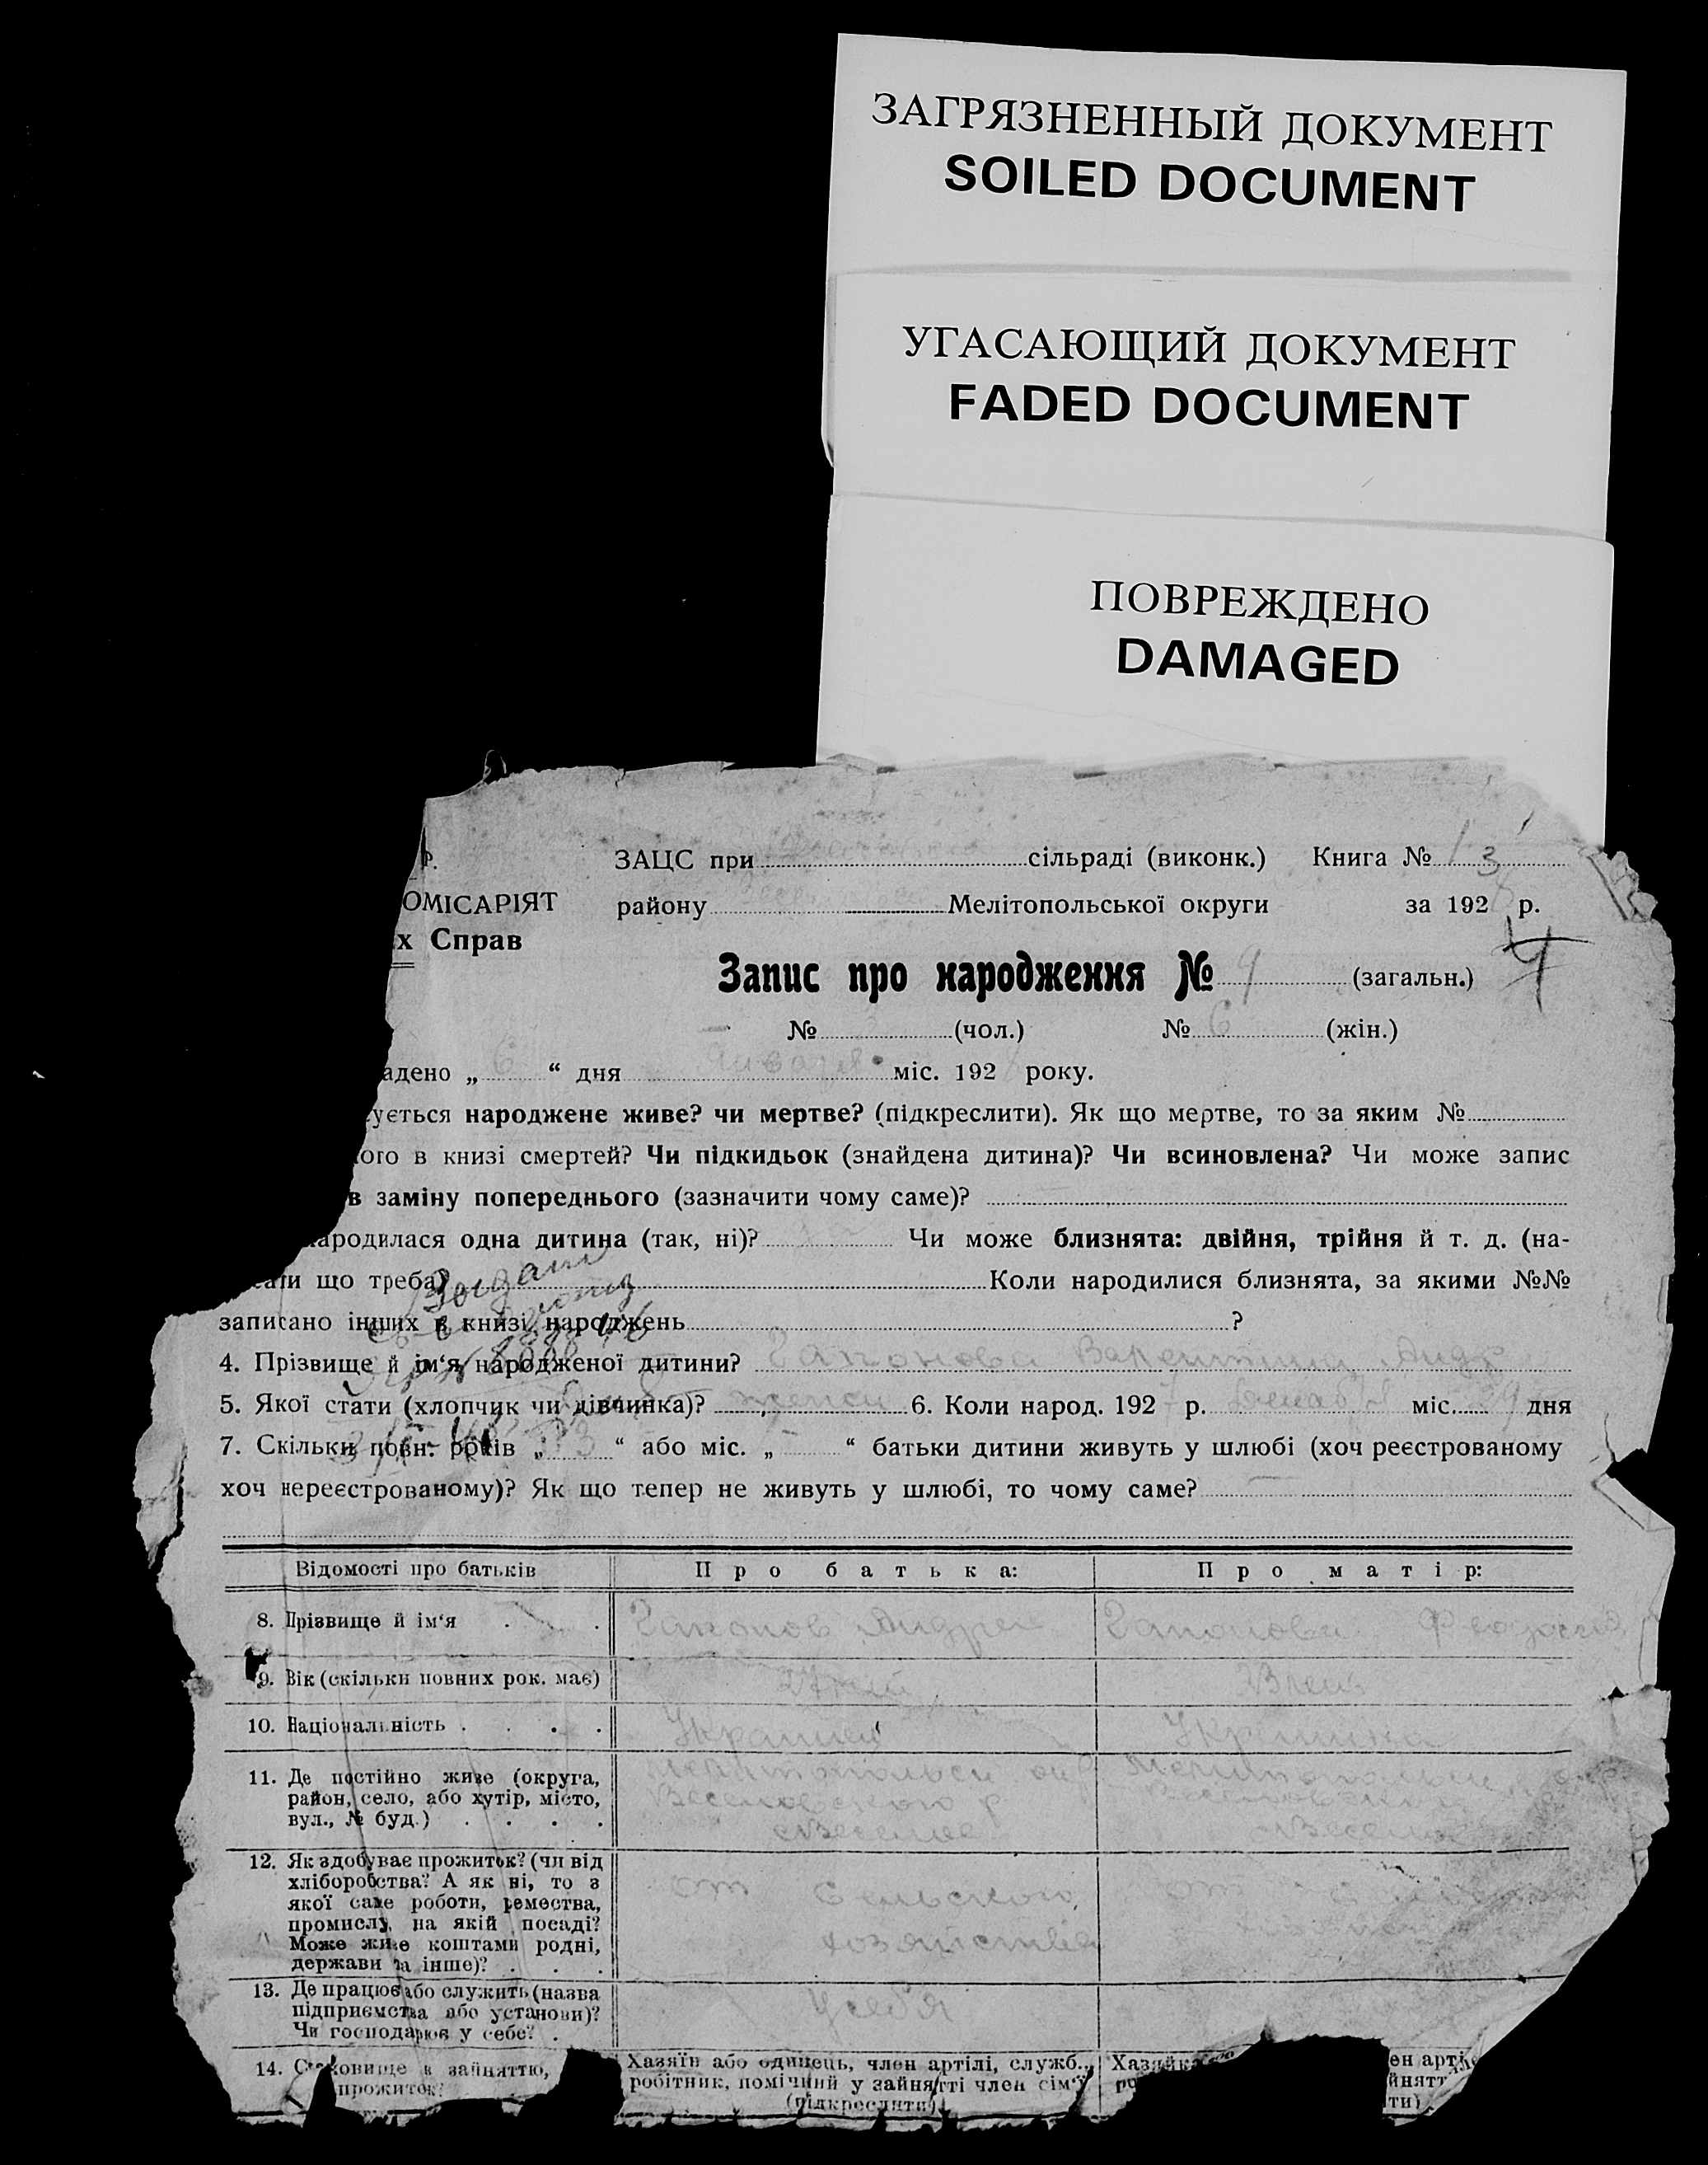 ЗАГРЯЗНЕННЫЙ ДОКУМЕНТ
SOILED DOCUMENT
УГАСАЮЩИЙ ДОКУМЕНТ
FADED DOCUMENT
ПОВРЕЖДЕНО
DAMAGED
Р. ЗАЦС при сільраді (виконк.) Книга № 3
ОМІСАРІЯТ району Мелітопольської округи за 192 р.
х Справ
Запис про народження № 9 (загальн.) 4
№ (чол.) № 6 (жін.)
адено „ 6 “ дня Января міс. 192 року.
ується народжене живе? чи мертве? (підкреслити). Як що мертве, то за яким №
ого в книзі смертей? Чи підкидьок (знайдена дитина)? Чи всиновлена? Чи може запис
в заміну попереднього (зазначити чому саме)?
народилася одна дитина (так, ні)? Чи може близнята: двійня, трійня й т. д. (на-
сати що треба) Коли народилися близнята, за якими №№
записано інших в книзі народжень ?
4. Прізвище й ім‘я народженої дитини? Гапонова Валентина Андр
5. Якої стати (хлопчик чи дівчинка)? женск 6. Коли народ. 192 7 р. Декабря міс. 29 дня
7. Скільки повн. років „ 3 “ або міс. „ – “ батьки дитини живуть у шлюбі (хоч реєстрованому
хоч нереєстрованому)? Як що тепер не живуть у шлюбі, то чому саме? —
Відомості про батьків Про батька: Про матір:
8. Прізвище й ім‘я Гапонов Андрей Гапонова Феодосия
9. Вік (скільки повних рок. має)
10. Національність Украинец Украинка
11. Де постійно живе (округа, Мелитопольск окр Мелитопольск окр
район, село, або хутір, місто, Веселовского р Веселовского
вул., № буд.) с Веселое с Веселое
12. Як здобуває прожиток? (чи від
хліборобства? А як ні, то з
якої саме роботи, ремества, от Сельского от
промислу, на якій посаді?
Може живе коштами родні, хозяйства
держави та інше)?
13. Де працює або служить (назва У себя
підприємства або установи)?
Чи господарює у себе?
14. Становище в зайняттю, Хазяїн або одинець, член артілі, служб., Хазяйка ен арті
прожиток? робітник, помічний у зайнятті член сім‘ї йнятт
(підкреслити) ти)